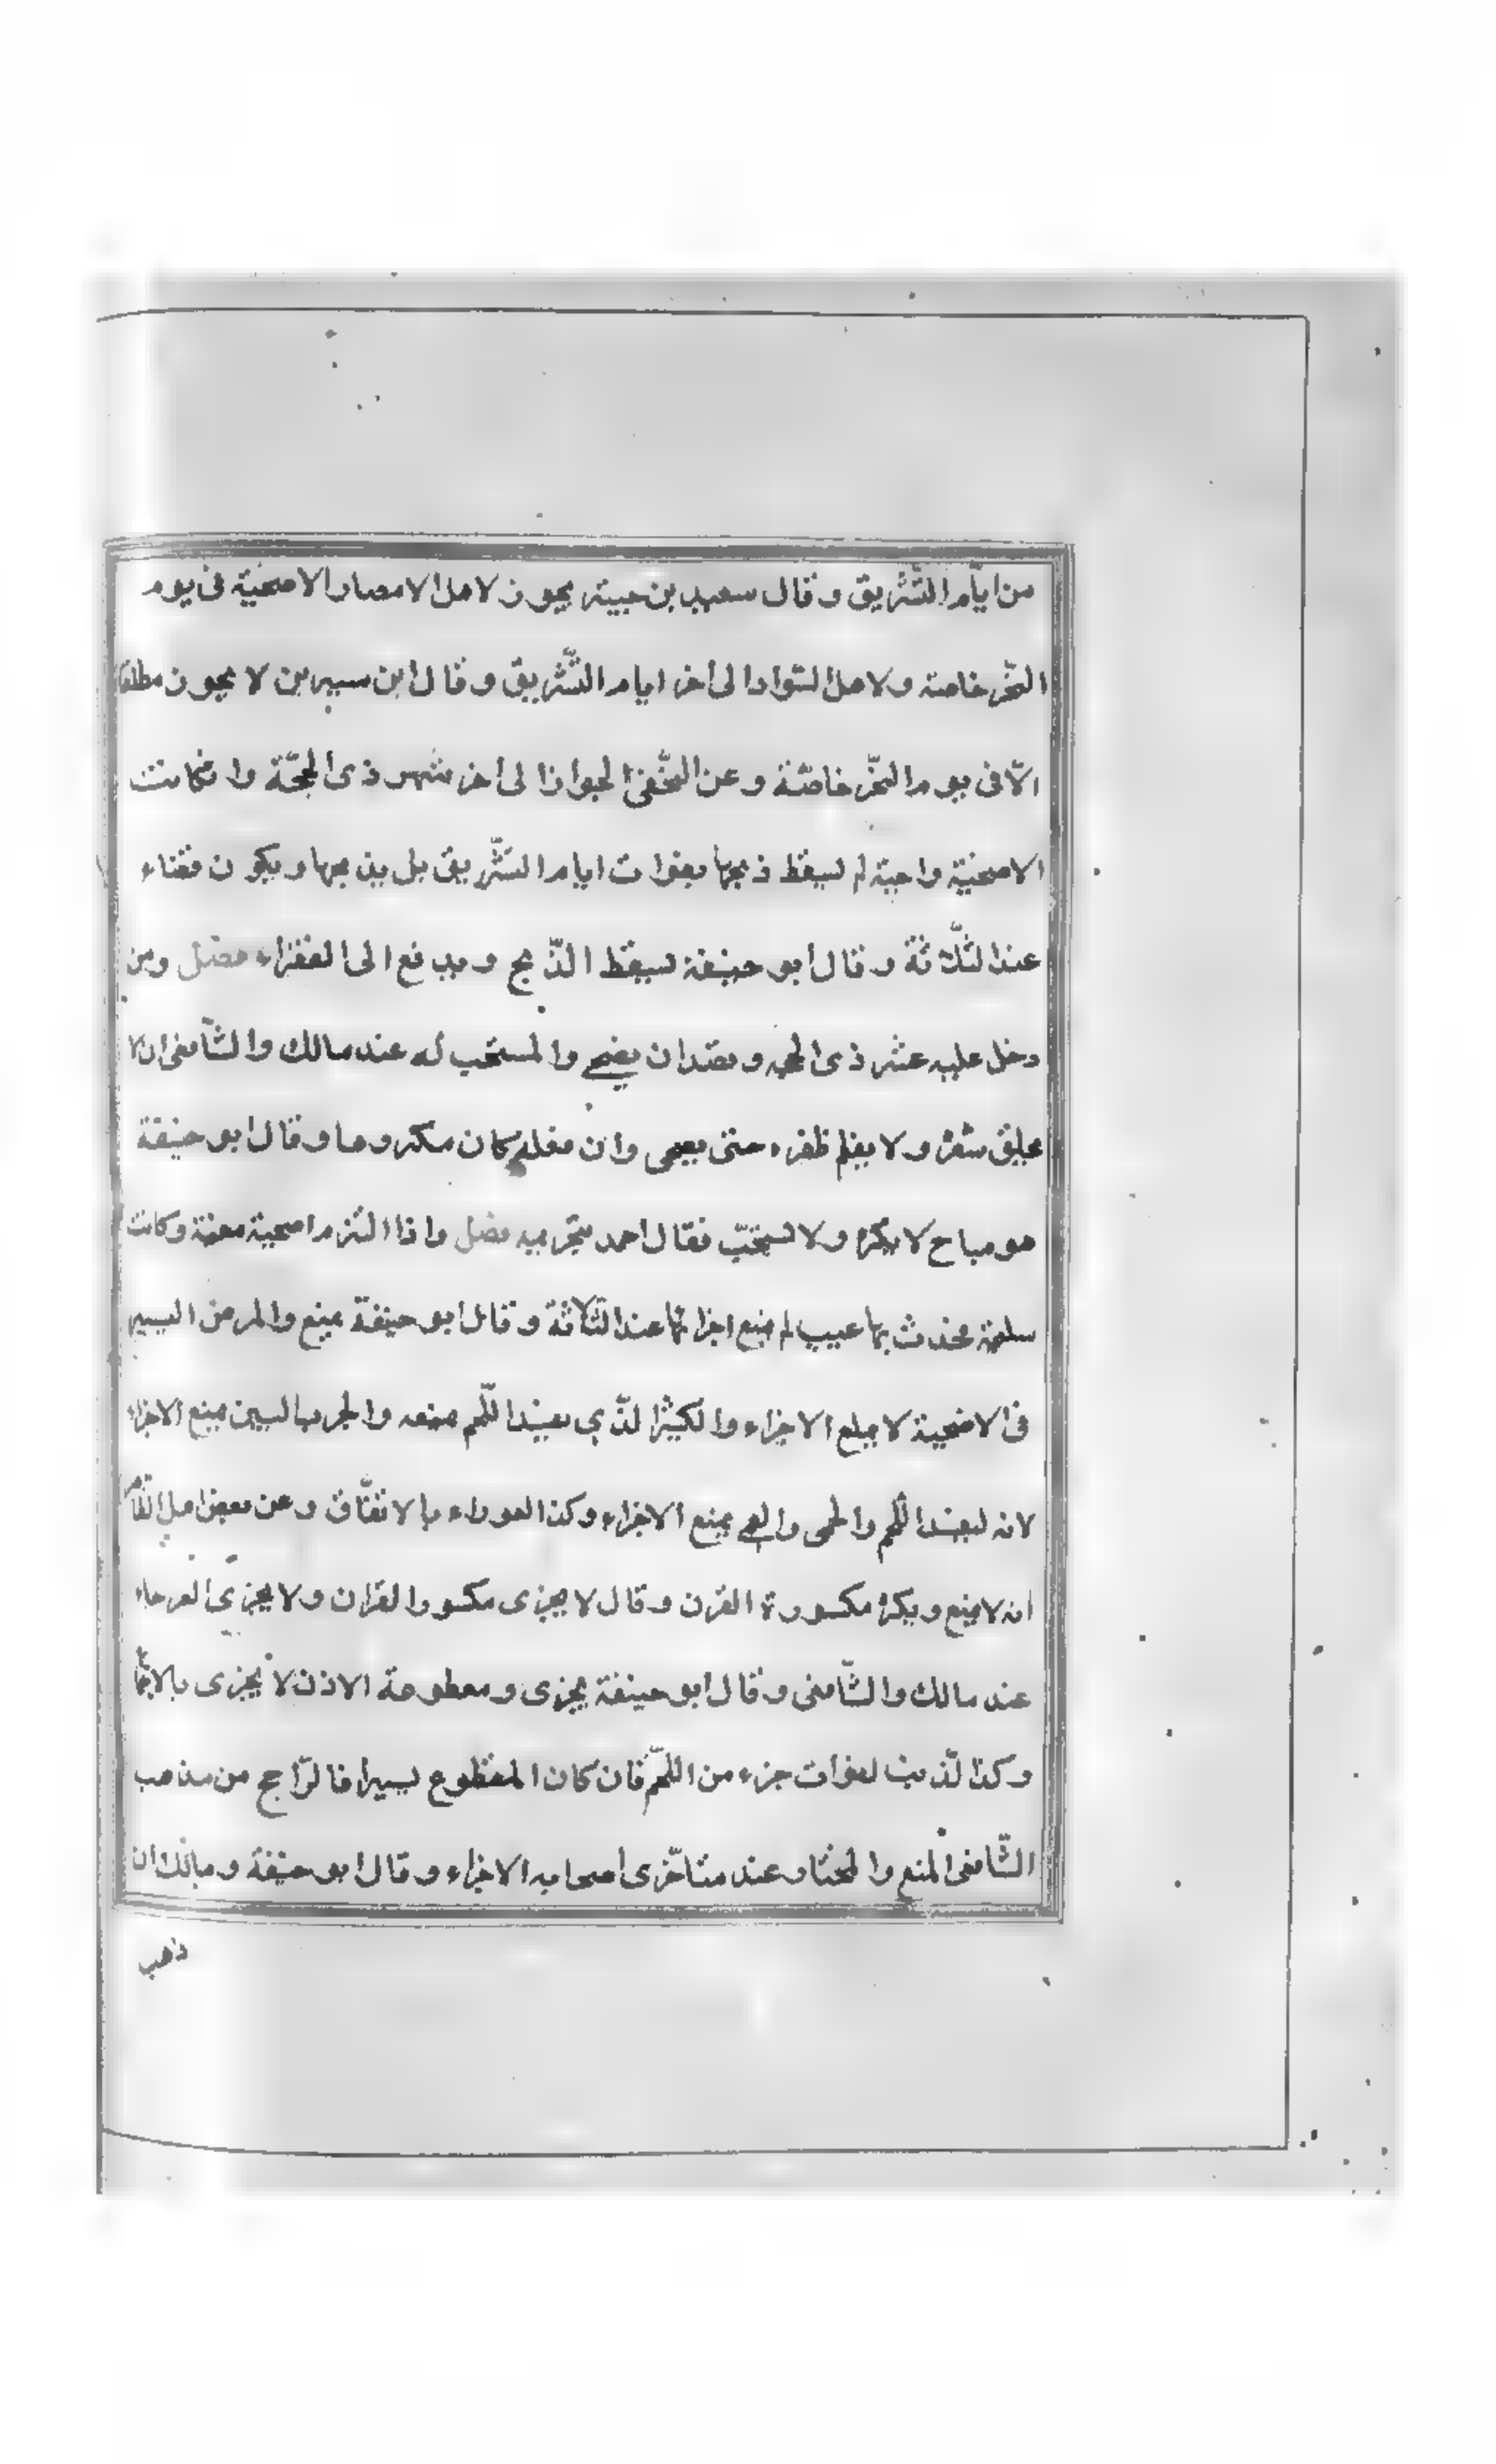 من ايّام التّشريق وقال سعيد بن جبير يجوز لاهل الامصار الاضحيّة فى يوم
النّحر خاصة ولاهل السّواد الى اخر ايام التّشريق وقال ابن سيرين لا يجوز مطلقا
الّا فى يوم النّحر خاصّة وعن النّخعى الجواز الى اخر شهر ذى الحجّة واذا كانت
الاضحيّة واجبة لم يسقط ذبحها بفوات ايام التّشريق بل يذبحها ويكون قضاء
عند الثّلاثة وقال ابو حنيفة يسقط الذّبح ويدفع الى الفقراء فصل ومن
دخل عليه عشر ذى الحجه وقصد ان يضحى والمستحب له عند مالك والشّافعى ان لا
يحلق شعره ولا يقلم ظفره حتى يضحى وان فعله كان مكروها وقال ابو حنيفة
هو مباح لا يكره ولا يستحبّ فقال احمد بتحريمه فصل واذا التزم اضحية معينة وكانت
سليمة فحدث بها عيب لم يمنع اجزائها عند الثّلاثة وقال ابو حنيفة يمنع والمرض اليسير
فى الاضحية لا يمنع الاجزاء والكثير الّذى يفسد اللّحم يمنعه والجرب البين يمنع الاجزاء
لانه يفسد اللّحم والعمى يمنع الاجزاء وكذا العوراء بالاتفّاق وعن بعض اهل الظّاهر
انه لا يمنع ويكره مكسورة القرن وقال لا يجزى مكسور القرن ولا يجزى العرجاء
عند مالك والشّافعى وقال ابو حنيفة يجزى ومقطوعة الاذن لا يجزى بالاتّفاق
وكذا الذنب لفوات جزء من اللّحم فان كان المقطوع يسيرا فالرّاجح من مذهب
الشّافعى المنع والمختار عند متأخّرى اصحابه الاجزاء وقال ابو حنيفة ومالك ان
ذهب